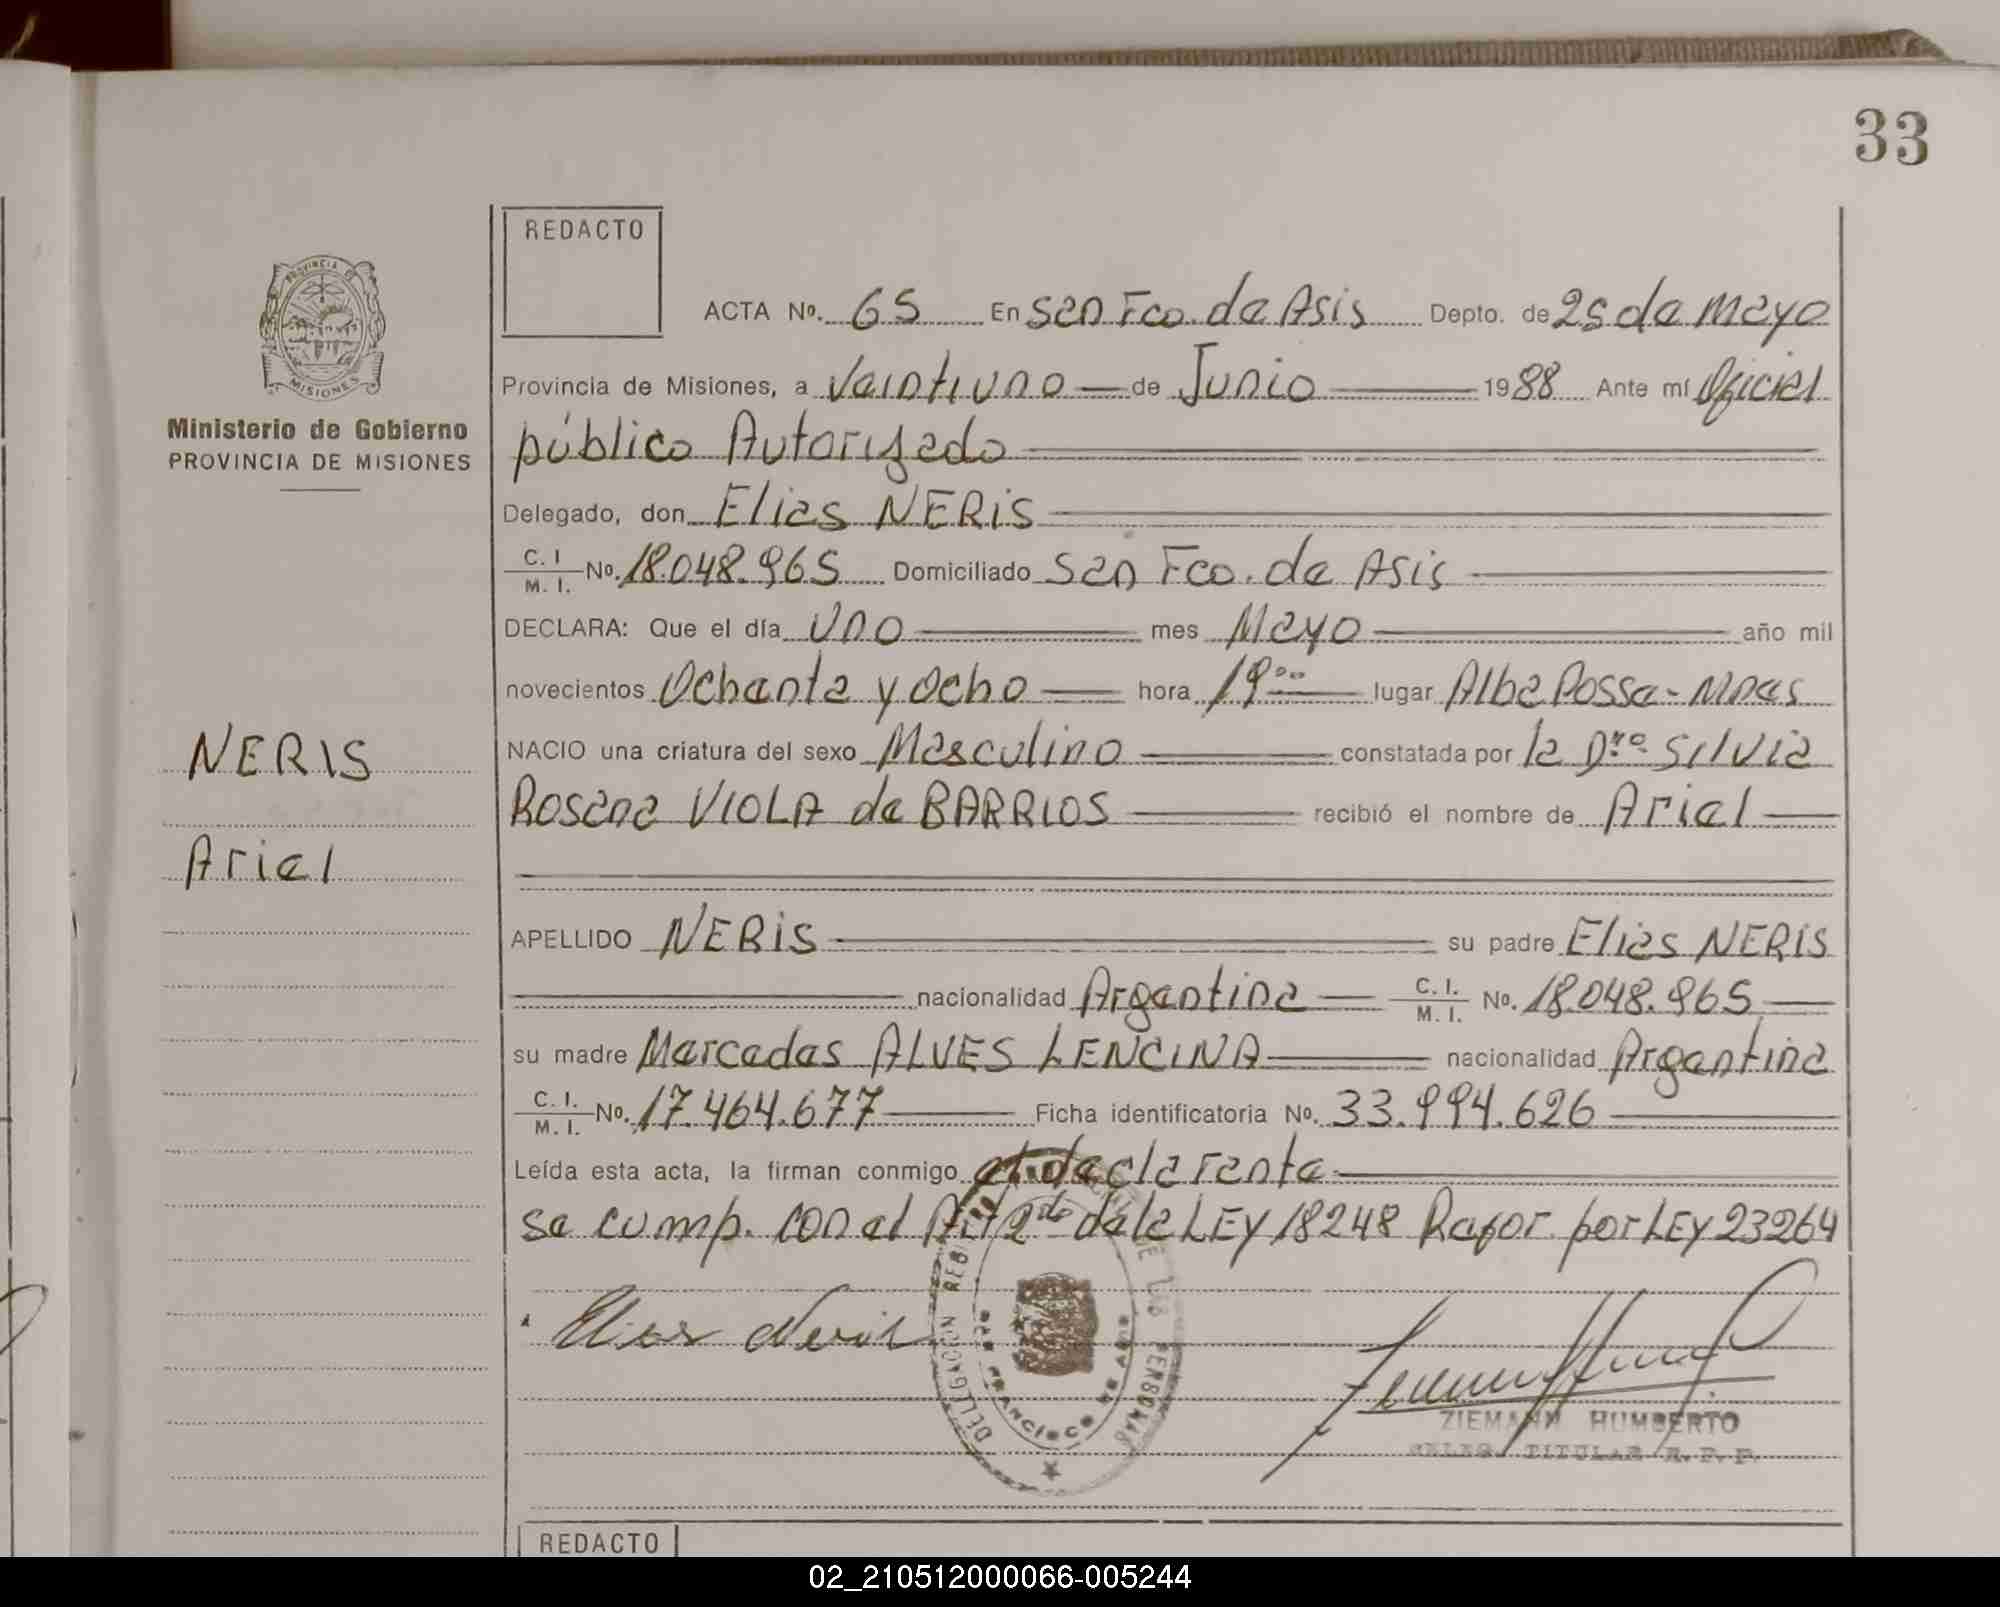 33
REDACTO
ACTA Nº. 65 En San Fco. de Asis Depto. de 25 de Mayo
Provincia de Misiones, a Veintiuno de Junio 1988 Ante mí Oficial
público Autorizado
PROVINCIA DE
MISIONES
Ministerio de Gobierno
PROVINCIA DE MISIONES
Delegado, don Elias NERIS
C. I. / M. I. No. 18.048.965 Domiciliado San Fco. de Asis
DECLARA: Que el día Uno mes Mayo año mil
novecientos Ochenta y Ocho hora 19°° lugar Alba Possa - Mnes
NERIS
NACIO una criatura del sexo Masculino constatada por la Dra. Silvia
Rosana VIOLA de BARRIOS recibió el nombre de Ariel
Ariel
APELLIDO NERIS su padre Elias NERIS
nacionalidad Argentina C. I. / M. I. No. 18.048.965
su madre Mercedes ALVES LENCINA nacionalidad Argentina
C. I. / M. I. No. 17.464.677 Ficha identificatoria No. 33.994.626
Leída esta acta, la firman conmigo el declarante
se cump. con el Art 2do de la LEY 18248 Refor. por LEY 23264
Elias Neris
DELEGACION DE LAS PERSONAS
SAN FRANCISCO DE ASIS
ZIEMANN HUMBERTO
DELEG. TITULAR R. P. P.
REDACTO
02_210512000066-005244